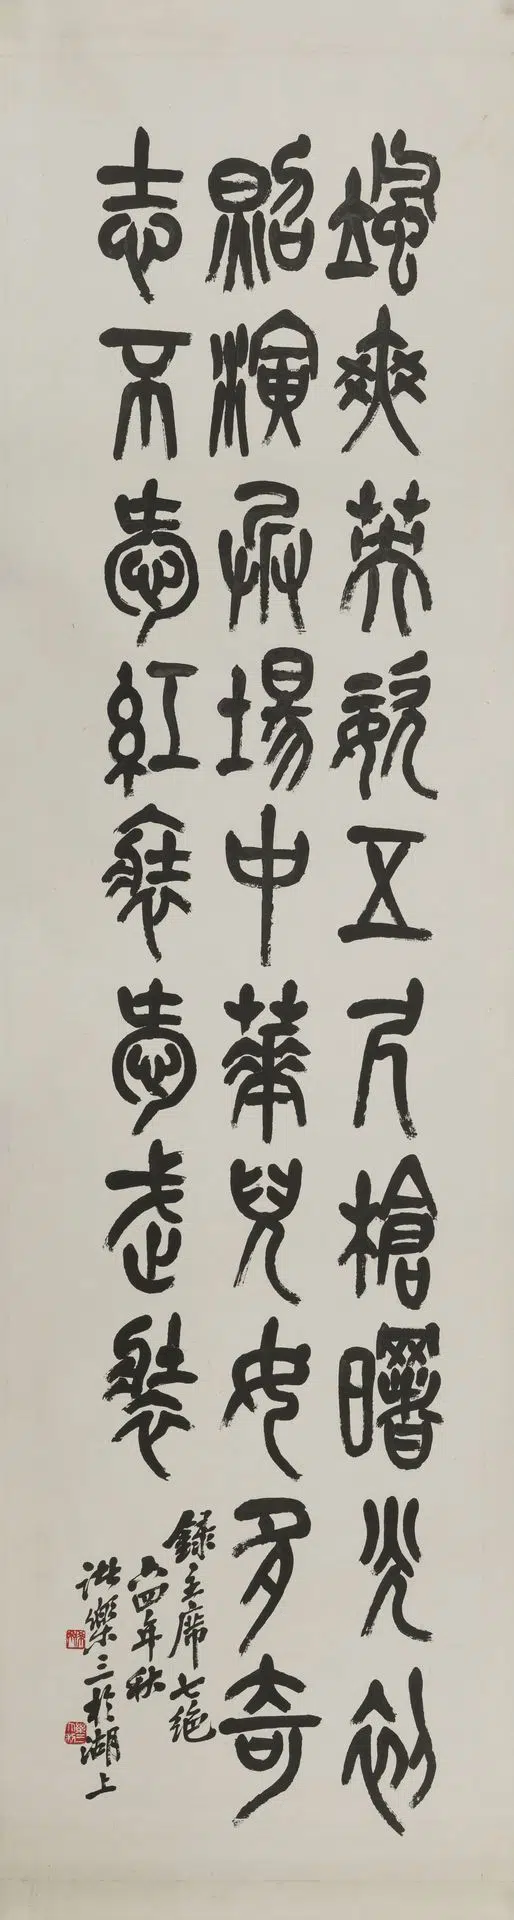 颯爽英姿五尺槍曙光初
照演兵場中華兒女多奇
志不愛紅裝愛武裝
録主席七絶
六四年秋
諸樂三於湖上